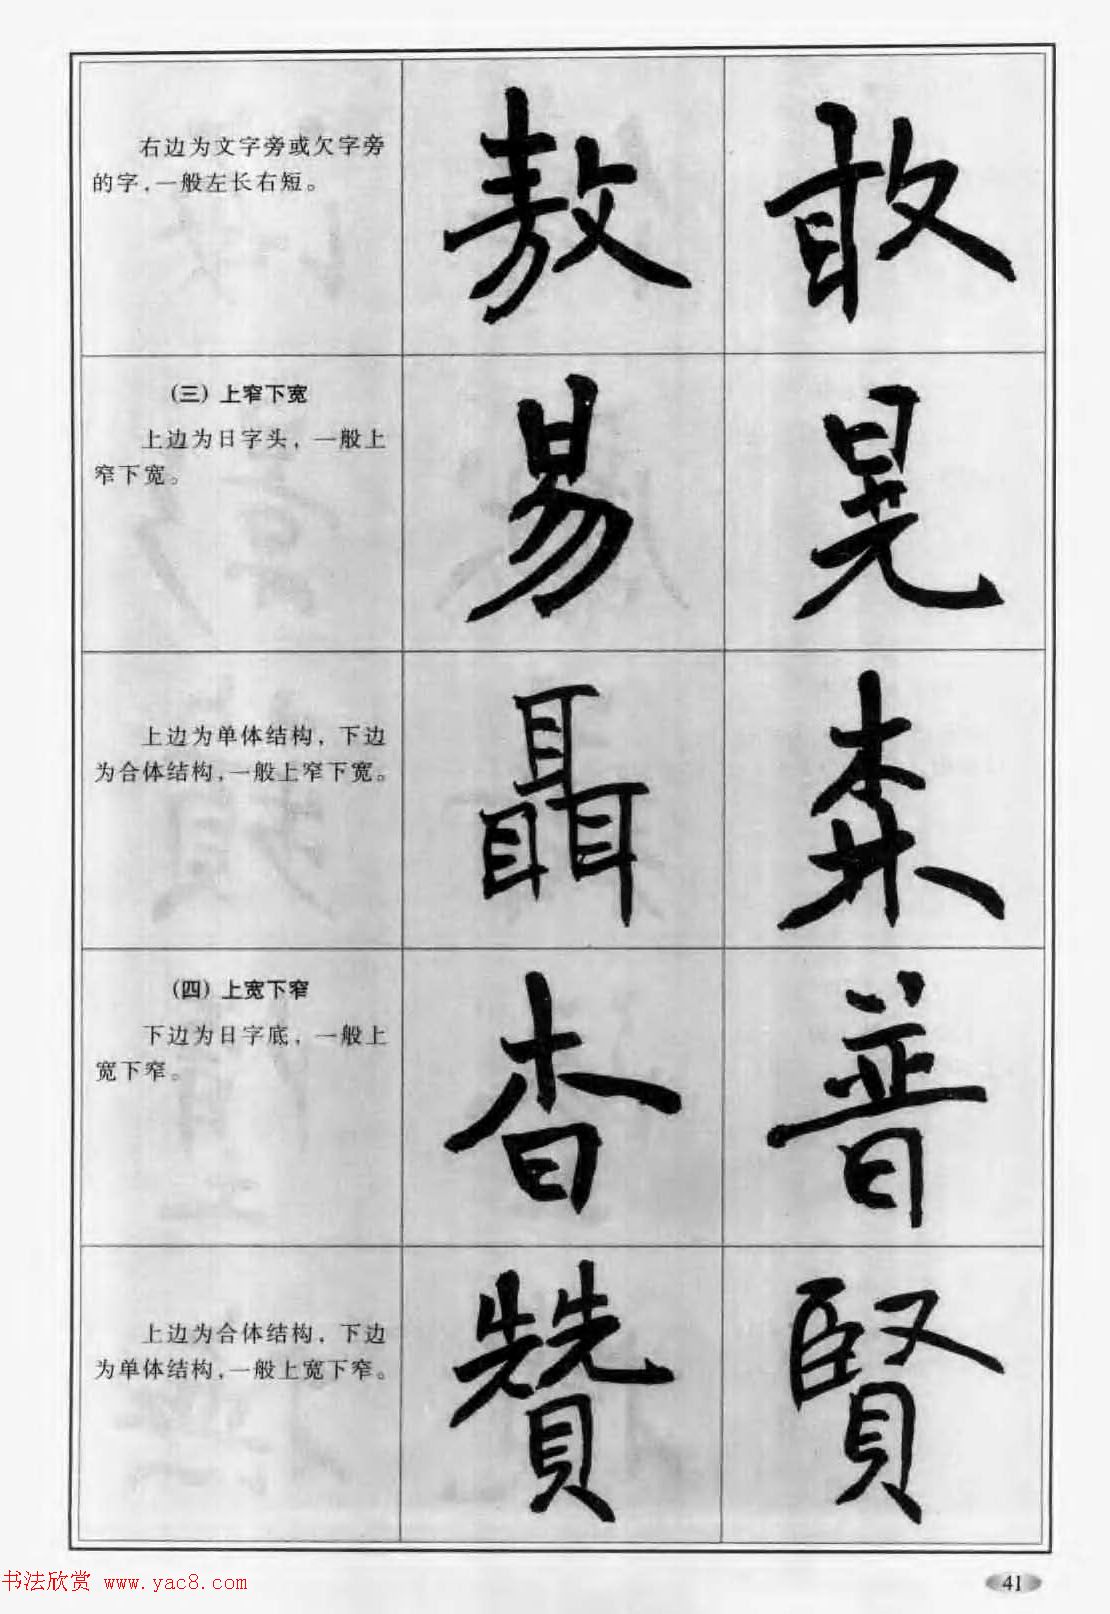 右边为文字旁或欠字旁
的字,一般左长右短。
敖 敢
(三) 上窄下宽
上边为日字头,一般上
窄下宽。
易 晃
上边为单体结构,下边
为合体结构,一般上窄下宽。
聶 森
(四) 上宽下窄
下边为日字底,一般上
宽下窄。
杳 普
上边为合体结构,下边
为单体结构,一般上宽下窄。
贊 賢
书法欣赏 www.yac8.com
41